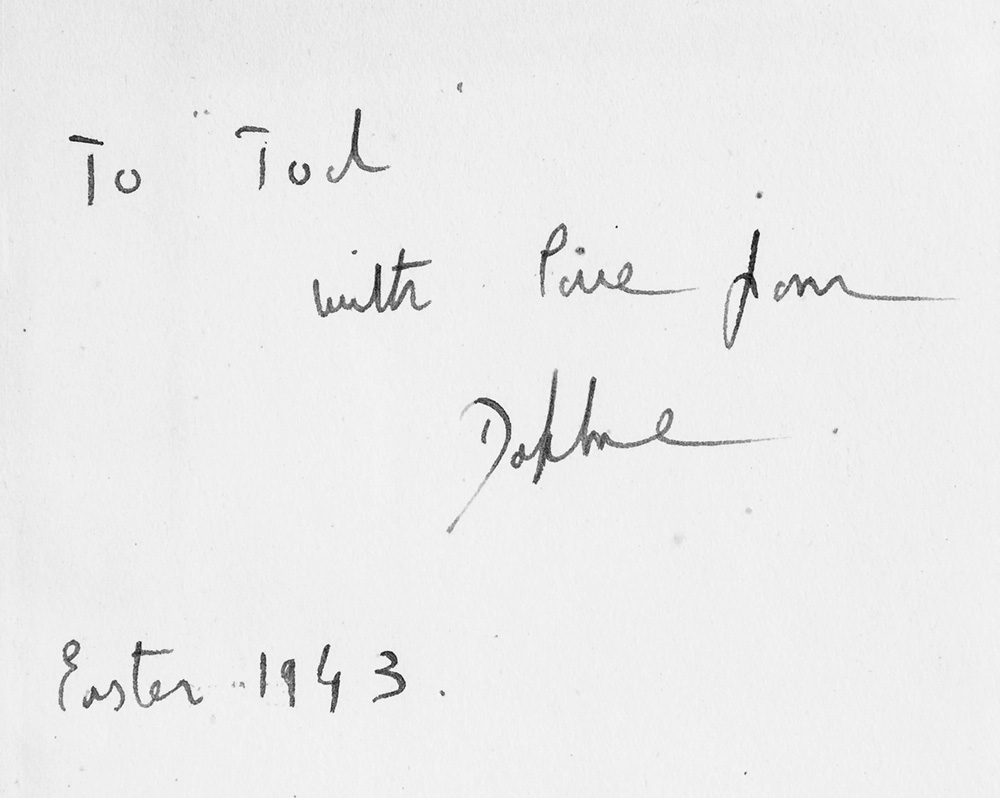 To Tod
with love from
Daphne
Easter 1943.